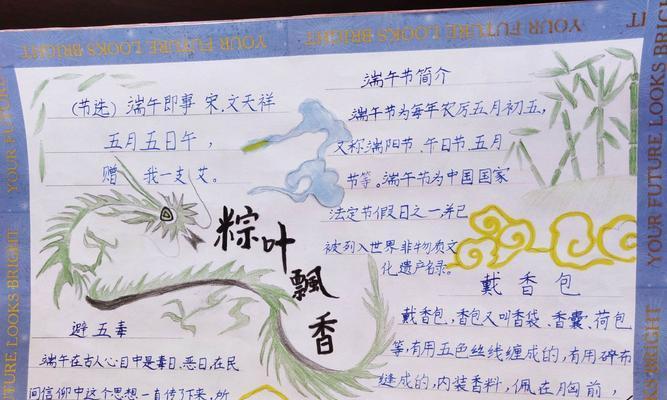 YOUR FUTURE LOOKS BRIGHT
YOUR FUTURE LOOKS BRIGHT
(节选) 端午即事 宋.文天祥
五月五日午，
赠我一支艾。
端午节简介
端午节为每年农历五月初五，
又称端阳节.午日节.五月
节等。端午节为中国国家
法定节假日之一并已
被列入世界非物质文
化遗产名录。
粽叶
飘
香
戴香包
戴香包，香包又叫香袋、香囊、荷包
等，有用五色丝线缠成的，有用碎布
缝成的，内装香料，佩在胸前，
避五毒
端午在古人心目中是毒日、恶日，在民
间信仰中这个思想一直传了下来，所
YOUR FUTURE LOOKS BRIGHT
YOUR FUTURE LOOKS BRIGHT